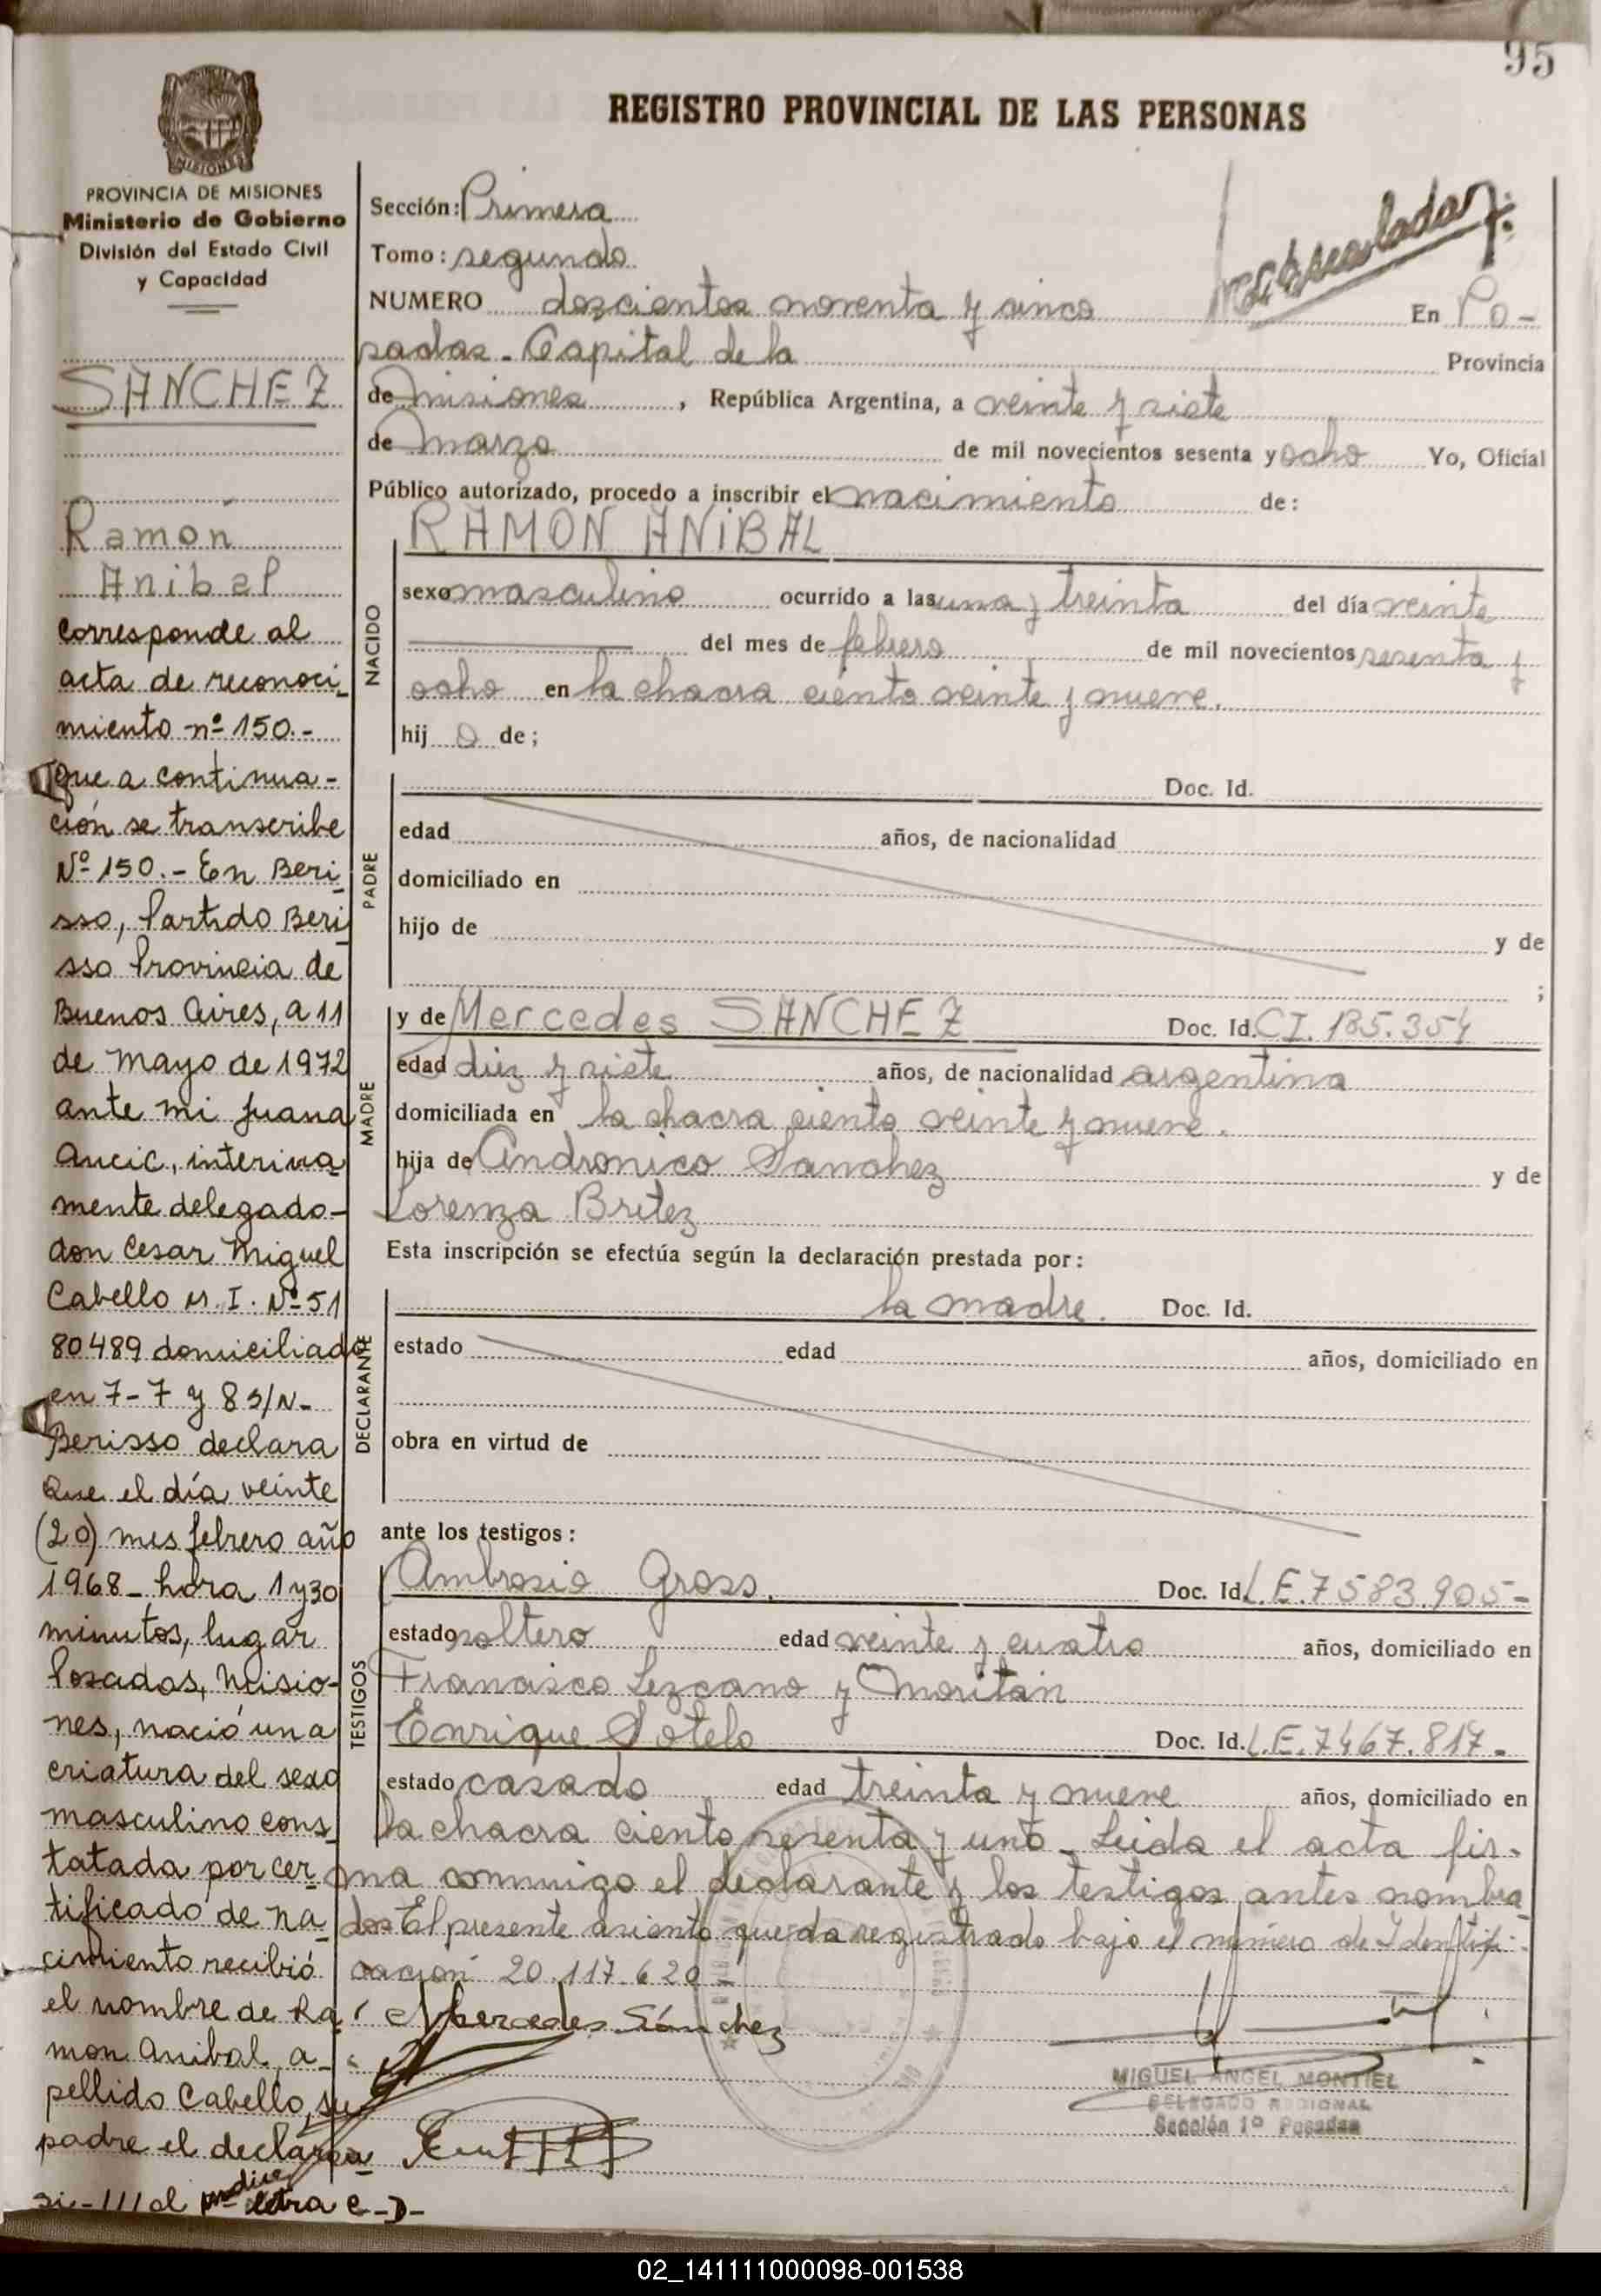 95
REGISTRO PROVINCIAL DE LAS PERSONAS
MISIONES
PROVINCIA DE MISIONES
Ministerio de Gobierno
División del Estado Civil
y Capacidad
SANCHEZ
Ramón
Anibal
corresponde al
acta de reconoci-
miento nº 150.-
que a continua-
ción se transcribe
Nº 150.- En Beri-
sso, Partido Beri-
sso Provincia de
Buenos Aires, a 11
de Mayo de 1972
ante mi Juana
Aucic, interina-
mente delegado-
don Cesar Miguel
Cabello M. I. Nº 51
80489 domiciliado
en 7-7 y 8 s/N-
Berisso declara
Que el día veinte
(20) mes febrero año
1968- hora 1 y 30
minutos, lugar
Posadas, Misio-
nes, nació una
criatura del sexo
masculino cons-
tatada por cer-
tificado de na-
cimiento recibió
el nombre de Ra-
mon Anibal, a-
pellido Cabello, su
padre el declara
si-///al letra C-D-
Sección: Primera
Tomo: segundo
NUMERO doscientos noventa y cinco En Po-
sadas - Capital de la Provincia
de Misiones, República Argentina, a veinte y siete
de marzo de mil novecientos sesenta y ocho Yo, Oficial
Público autorizado, procedo a inscribir el nacimiento de:
RAMON ANIBAL
NACIDO
sexo masculino ocurrido a las una y treinta del día veinte
del mes de febrero de mil novecientos sesenta y
ocho en la chacra ciento veinte y nueve.
hij o de;
PADRE
Doc. Id.
edad años, de nacionalidad
domiciliado en
hijo de y de
;
MADRE
y de Mercedes SANCHEZ Doc. Id. C.I. 185.354
edad diez y siete años, de nacionalidad argentina
domiciliada en la chacra ciento veinte y nueve.
hija de Andronico Sanchez y de
Lorenza Britez
Esta inscripción se efectúa según la declaración prestada por:
DECLARANTE
la madre. Doc. Id.
estado edad años, domiciliado en
obra en virtud de
ante los testigos:
TESTIGOS
Ambrosio Gross. Doc. Id. L.E. 7583.905-
estado soltero edad veinte y cuatro años, domiciliado en
Francisco Lezcano y Moritan
Enrique Sotelo Doc. Id. L.E. 7467.817-
estado casado edad treinta y nueve años, domiciliado en
la chacra ciento sesenta y uno - Leida el acta fir-
ma conmigo el declarante y los testigos antes nombra-
dos El presente asiento queda registrado bajo el número de Identifi-
cación 20.117.620-
Mercedes Sánchez
MIGUEL ANGEL MONTIEL
DELEGADO REGIONAL
Sección 1º Posadas
02_141111000098-001538